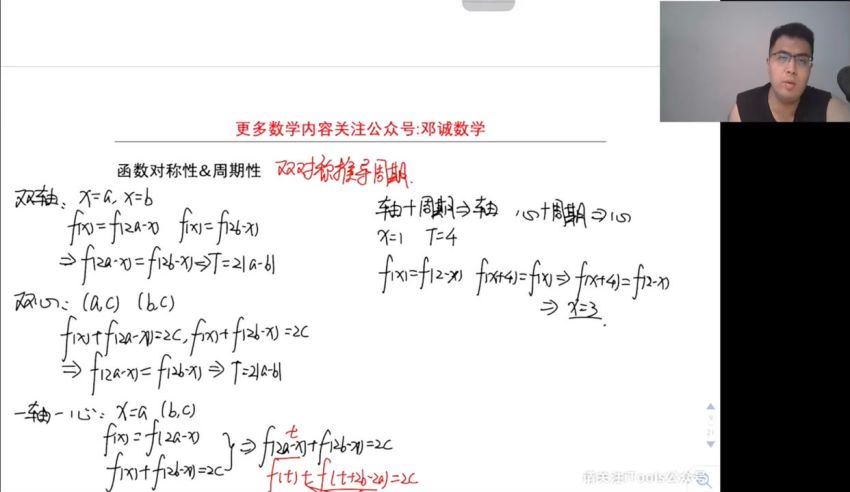 更多数学内容关注公众号:邓诚数学
函数对称性&周期性 双对称推导周期.
双轴: x=a, x=b
f(x)=f(2a-x) f(x)=f(2b-x)
⇒f(2a-x)=f(2b-x)⇒T=2|a-b|
双心: (a,c) (b,c)
f(x)+f(2a-x)=2c, f(x)+f(2b-x)=2c
⇒ f(2a-x)=f(2b-x)⇒T=2|a-b|
一轴一心: x=a (b,c)
f(x)=f(2a-x)
f(x)+f(2b-x)=2c
⇒f(2a-x)+f(2b-x)=2c
t
f(t)+f(t+2b-2a)=2c
轴+周期⇒轴 心+周期⇒心
x=1 T=4
f(x)=f(2-x) f(x+4)=f(x)⇒f(x+4)=f(2-x)
⇒ x=3.
请关注iTools公众号